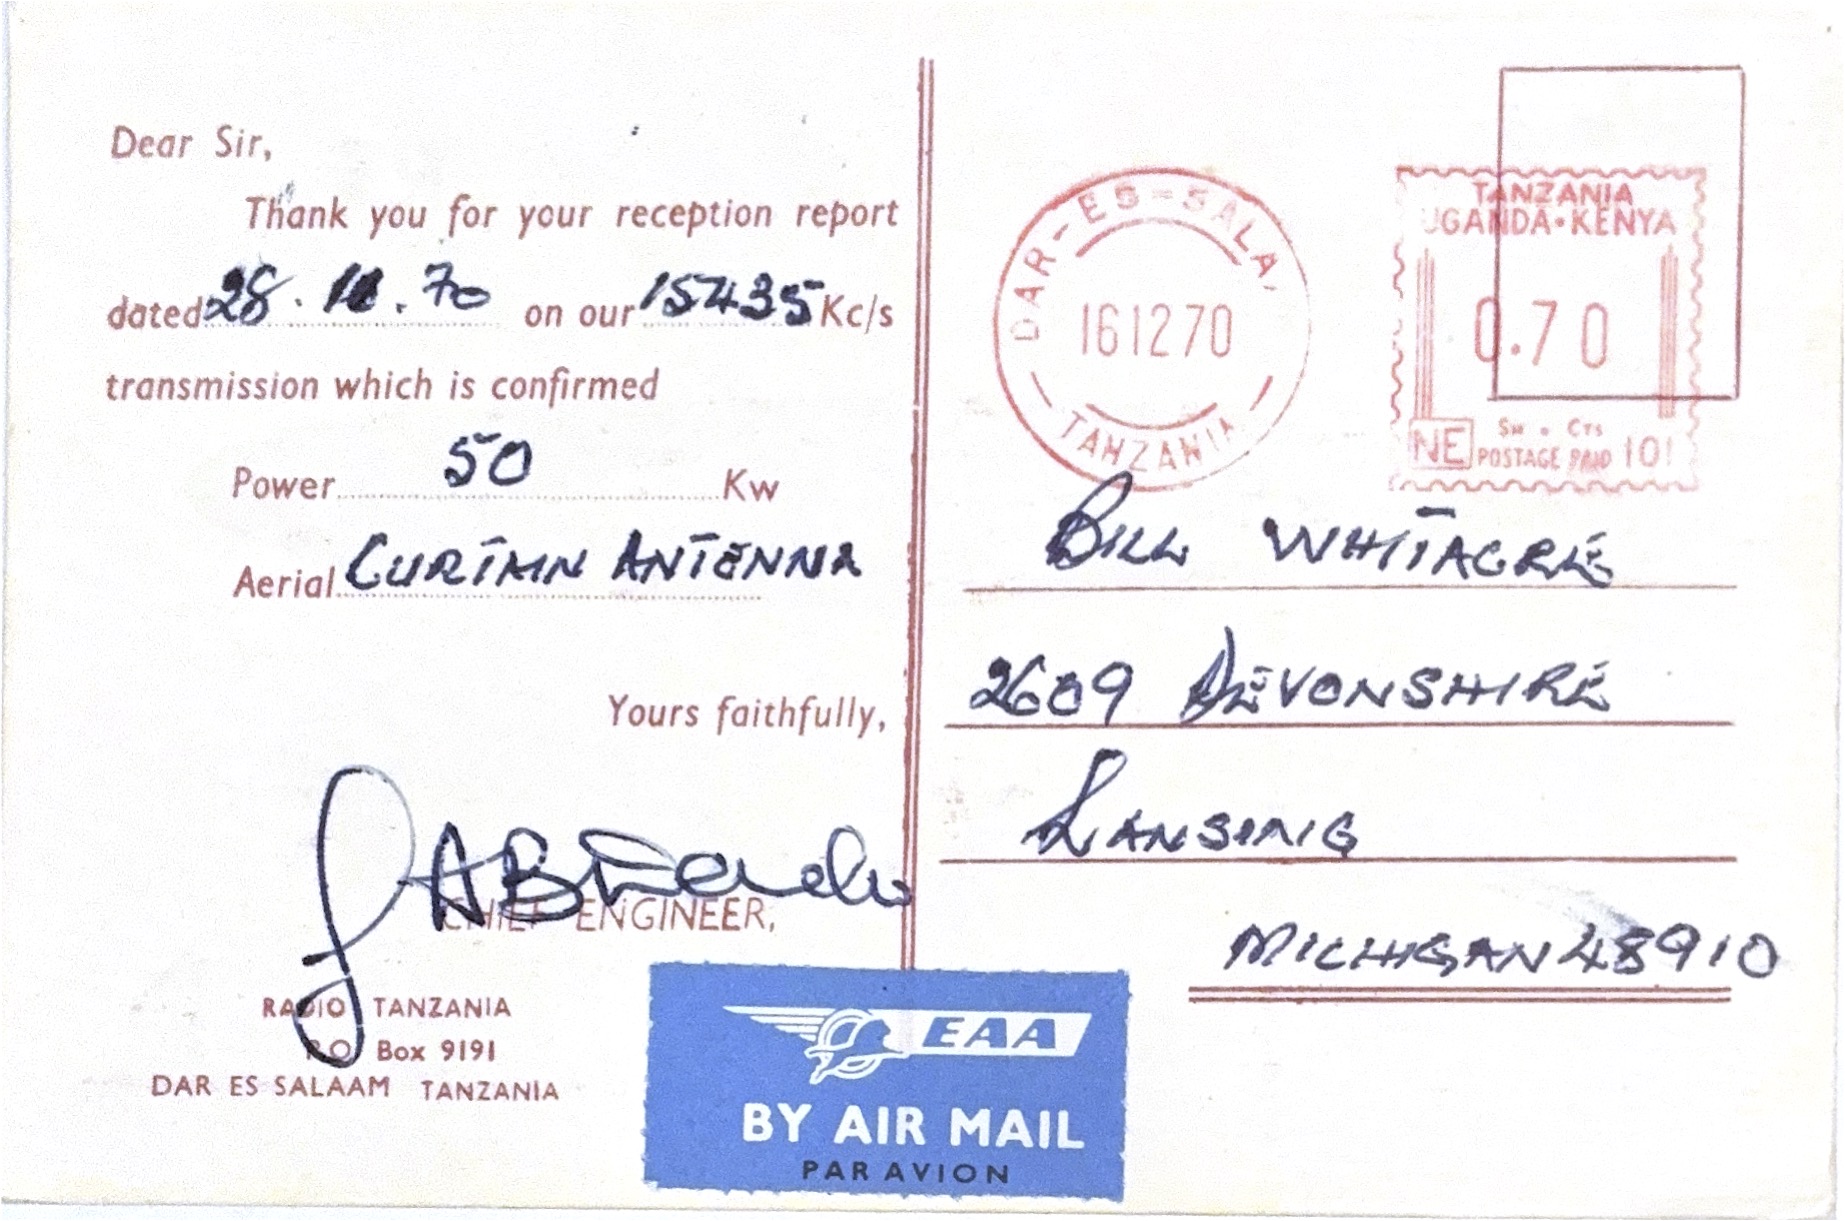 Dear Sir,
Thank you for your reception report
dated 28. .70 on our 15435 Kc/s
transmission which is confirmed
Power 50 Kw
Aerial CURTAIN ANTENNA
Yours faithfully,
CHIEF ENGINEER,
RADIO TANZANIA
P.O. Box 9191
DAR ES SALAAM TANZANIA
DAR-ES-SALA,
161270
TANZANIA
TANZANIA
UGANDA•KENYA
0.70
SH . CTS
NE POSTAGE PAID 101
BILL WHITACRE
2609 DEVONSHIRE
LANSING
MICHIGAN 48910
EAA
BY AIR MAIL
PAR AVION